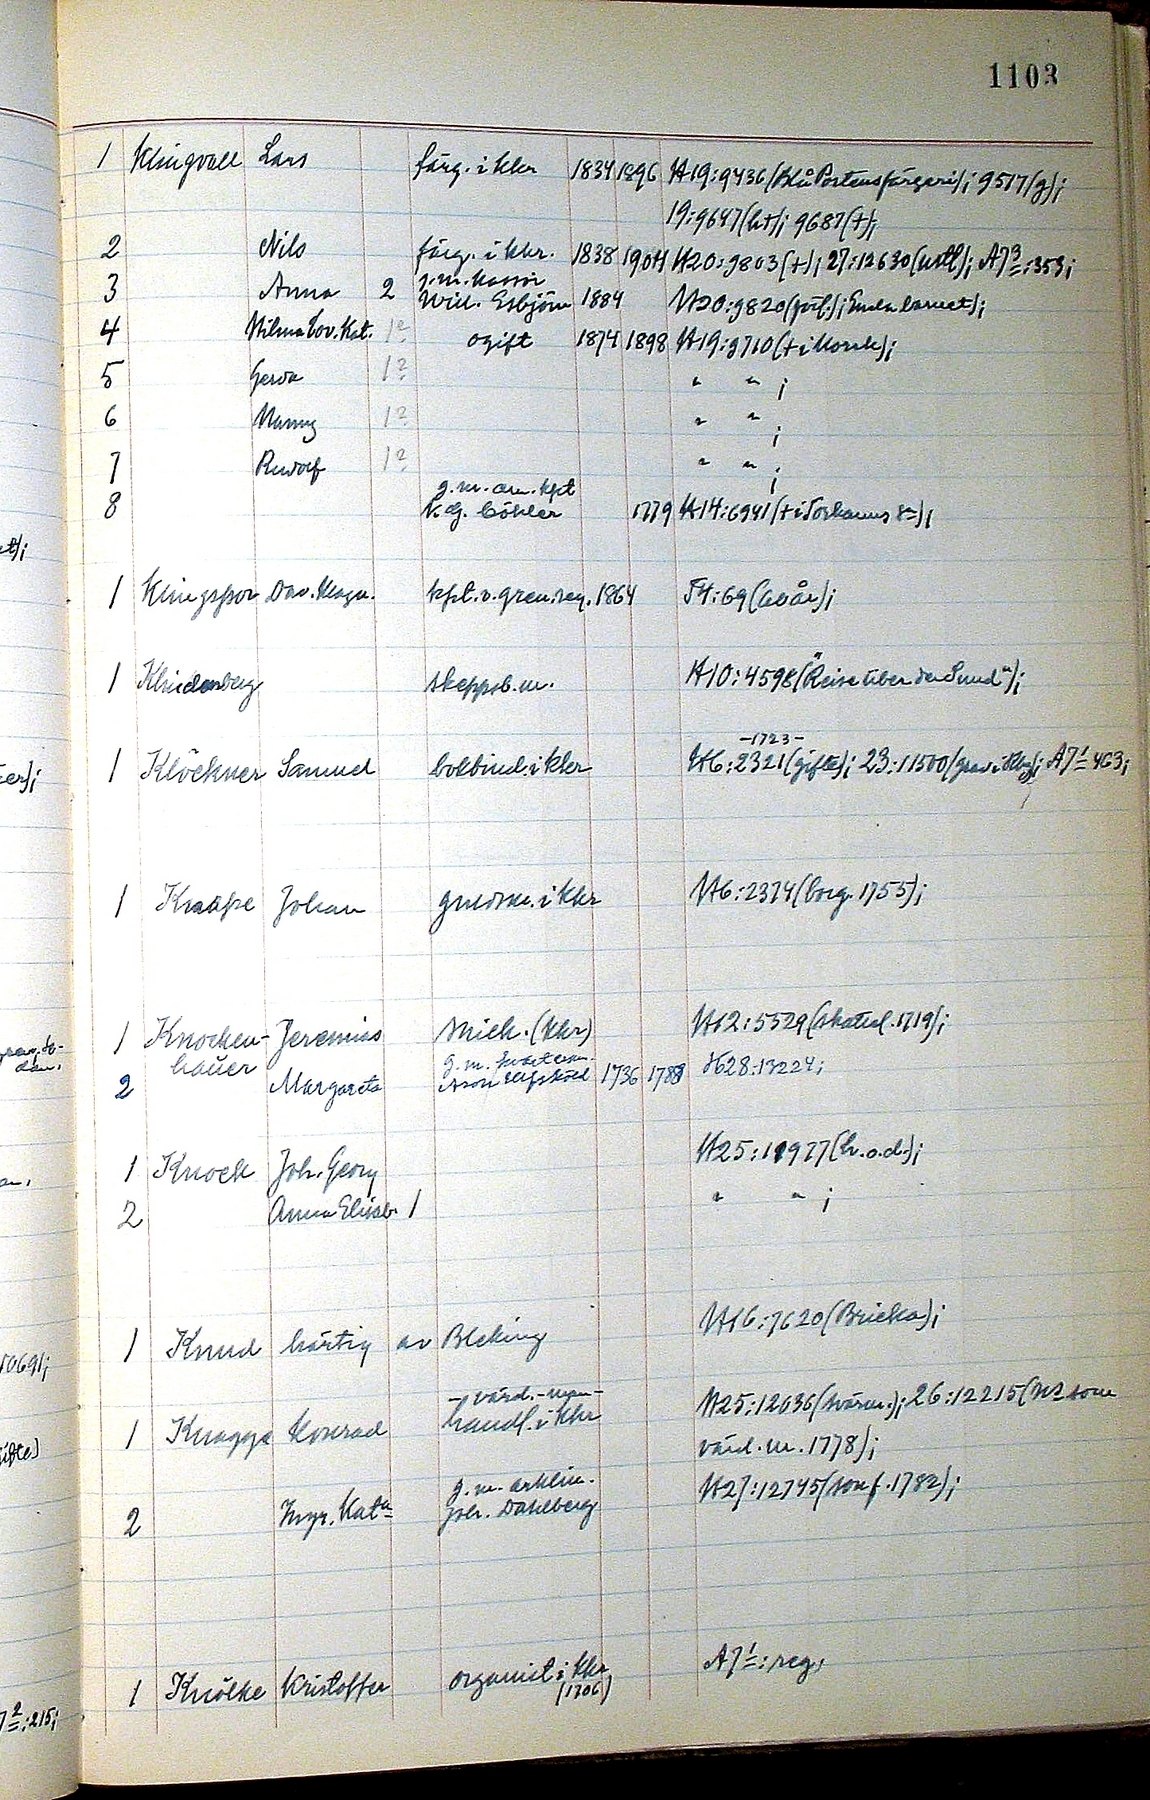 1103
1 Klingvall Lars färg. i khr 1834 1896 H19:9436 (Blå Portens färgeri); 9517 (g);
19:9647 (h+); 9687 (+);
2 Nils färg. i khr. 1838 1904 H20:9803 (+); 27:12630 ; A7 3:353;
3 Anna 2 g.m. kassör
Will. Esbjörn 1884 H20:9820 (förl.); Enda barnet);
4 Wilma Lov. Kat. 1? ogift 1874 1898 H19:9710 (+ i Norrk);
5 Gerda 1? " " ;
6 Nanny 1? " " ;
7 Rudolf 1? " " ;
8 g.m. am. kpt
K.G. Cöhler 1779 H14:6941 (+ i Torhamns sn);
1 Klingspor Dav. Magn. kpt. v. gren. reg. 1864 F4:69 (60 år);
1 Klindenberg skeppsb.m. H10:4598 ("Reise über den Sund");
-1723-
1 Klöckner Samuel bokbind. i khr H6:2321 (gifte); 23:11500 (grav i ); A7 1 463;
1 Knaape Johan guldsm. i khr H6:2374 (borg. 1755);
1 Knochen- Jeremias snick. (khr) H12:5529 (skattel. 1719);
hauer
2 Margareta g.m.
Aron 1736 1788 H28:13224;
1 Knoch Joh. Georg H25:11977 (h.o.d.);
2 Anna Elisab. 1 " " ;
1 Knud härtig av Bleking H16:7620 (Bricka);
-värd.-man-
1 Knagge Konrad handl. i khr H25:12036 (svärm.); 26:12215 (n2 som
värd.m. 1778);
2 Ingr. Kata g.m. arklim.
Joh. Dahlberg H27:12745 (son f. 1782);
1 Knölke Kristoffer organist i khr A7 1: reg.
(1706)
at);
er);
dan.
10691;
7 2:215;